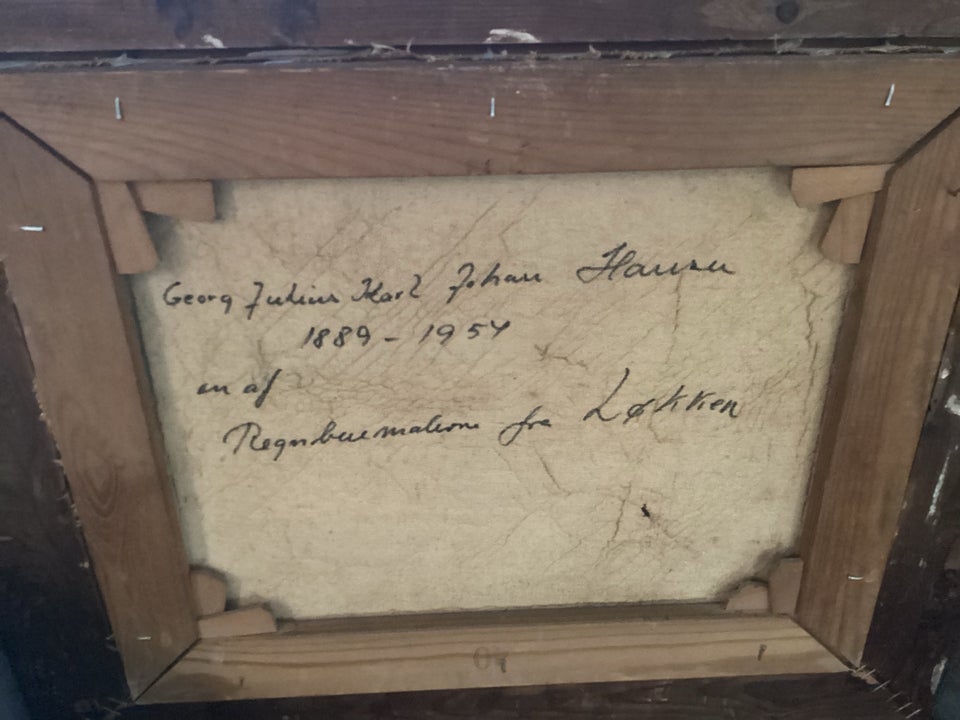 Georg Julius Karl Johan Hansen
1889 - 1957
en af
Regnbuemalerne fra Løkken